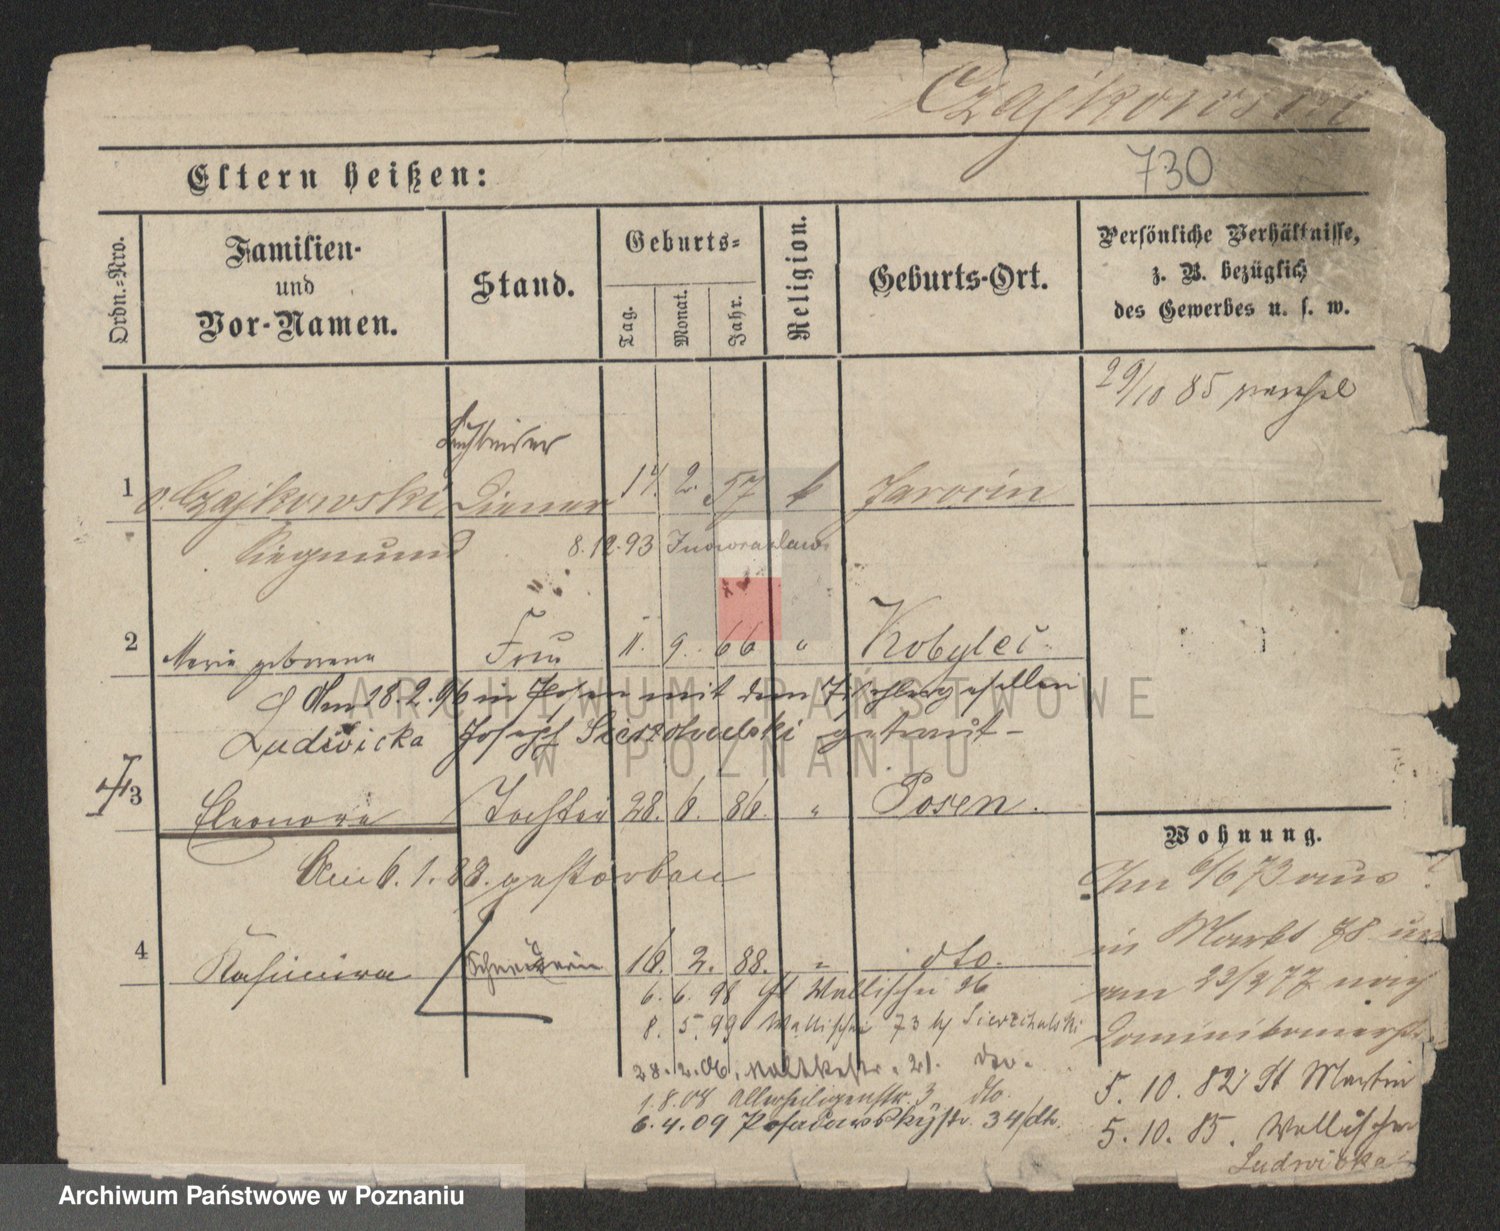 Czajkowski
730
Eltern heißen:
Ordn.-Nro.
Familien-
und
Vor-Namen.
Stand.
Geburts-
Tag.
Monat.
Jahr.
Religion.
Geburts-Ort.
Persönliche Verhältnisse,
z. B. bezüglich
des Gewerbes u. s. w.
29/10 85
1 v. Czajkowski Diener 14. 2. 57 k Jarocin
Siegmund 8.12.93 Inowrazlaw
2 Marie geborene Frau 11. 9. 66 " Kobylec
Am 18.2.96 in Posen mit dem Tischlergesellen
Ludwicka Josef getraut -
3 Eleonore Tochter 28. 6. 86. " Posen.
Am 6.1.88. gestorben
4 Kasimira 16. 2. 88. " dto.
6. 6. 98 Wallischei 26
8. 5. 99 Wallischei 73 b/
28.2.06. 21. dto.
1.8.08 Allerheiligenstr. 3, dto.
6.4.09 34/dto.
Wohnung.
Am 6/6 73 aus
in Markt 78
am 22/2 77 nach
Dominikanerstr.
5. 10. 82 St Martin
5. 10. 85. Wallischei
Ludwicka
ARCHIWUM PAŃSTWOWE
W POZNANIU
Archiwum Państwowe w Poznaniu